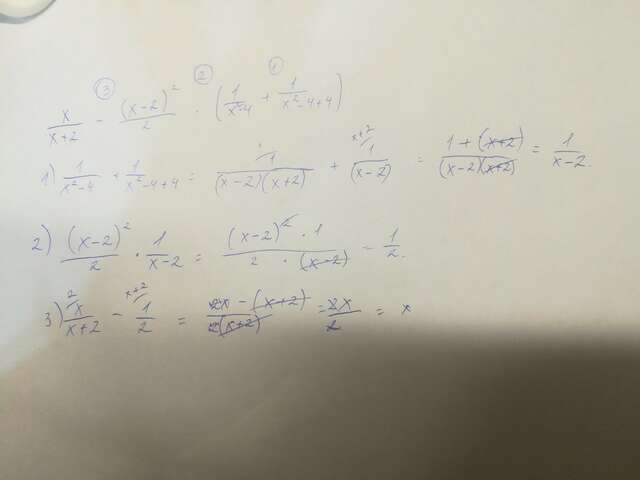 ③ ② ①
x/(x+2) - (x-2)²/2 · (1/(x²-4) + 1/(x²-4+4))
1) 1/(x²-4) + 1/(x²-4+4) = 1/((x-2)(x+2)) + 1/(x-2) = (1+(x+2))/((x-2)(x+2)) = 1/(x-2).
2) (x-2)²/2 · 1/(x-2) = ((x-2)²·1)/(2·(x-2)) = 1/2.
3) x/(x+2) - 1/2 = (2x-(x+2))/(2(x+2)) = 2x/2 = x